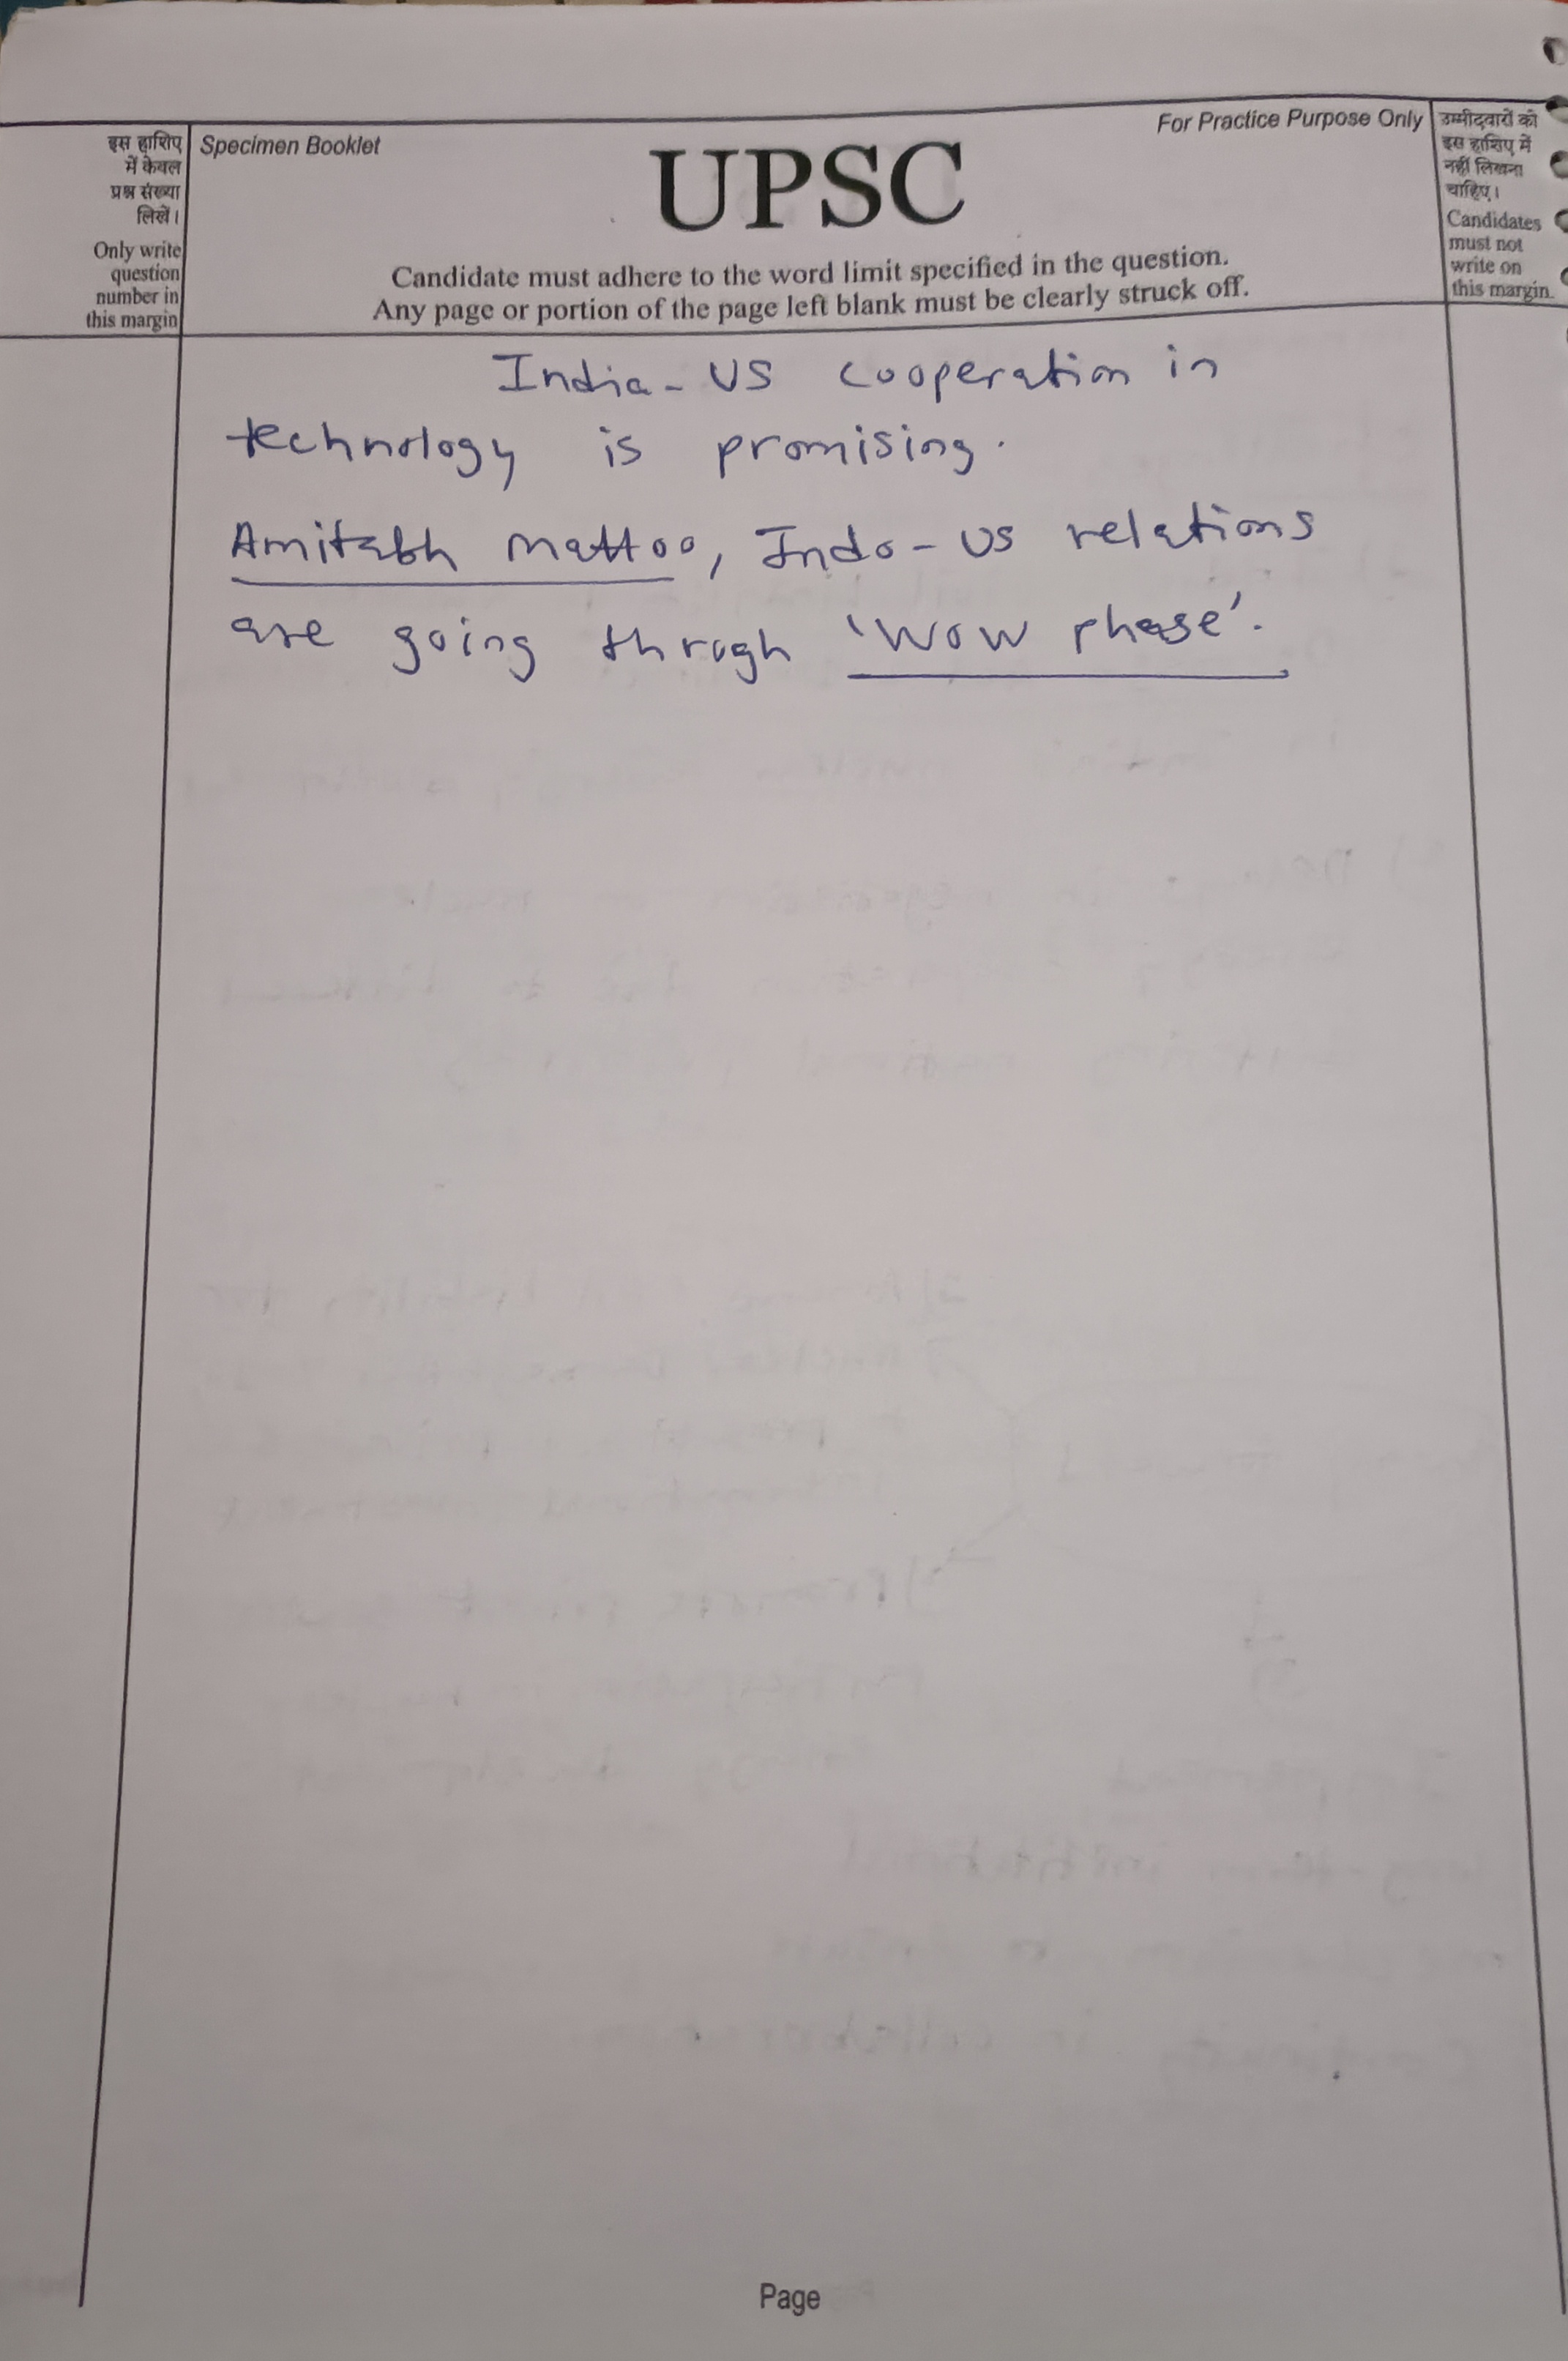 इस हाशिए
में केवल
प्रश्न संख्या
लिखें।
Only write
question
number in
this margin
Specimen Booklet
For Practice Purpose Only
UPSC
Candidate must adhere to the word limit specified in the question.
Any page or portion of the page left blank must be clearly struck off.
उम्मीदवारों को
इस हाशिए में
नहीं लिखना
चाहिए।
Candidates
must not
write on
this margin.
India-US cooperation in
technology is promising.
Amitabh Mattoo, Indo-US relations
are going through 'WOW phase'.
Page